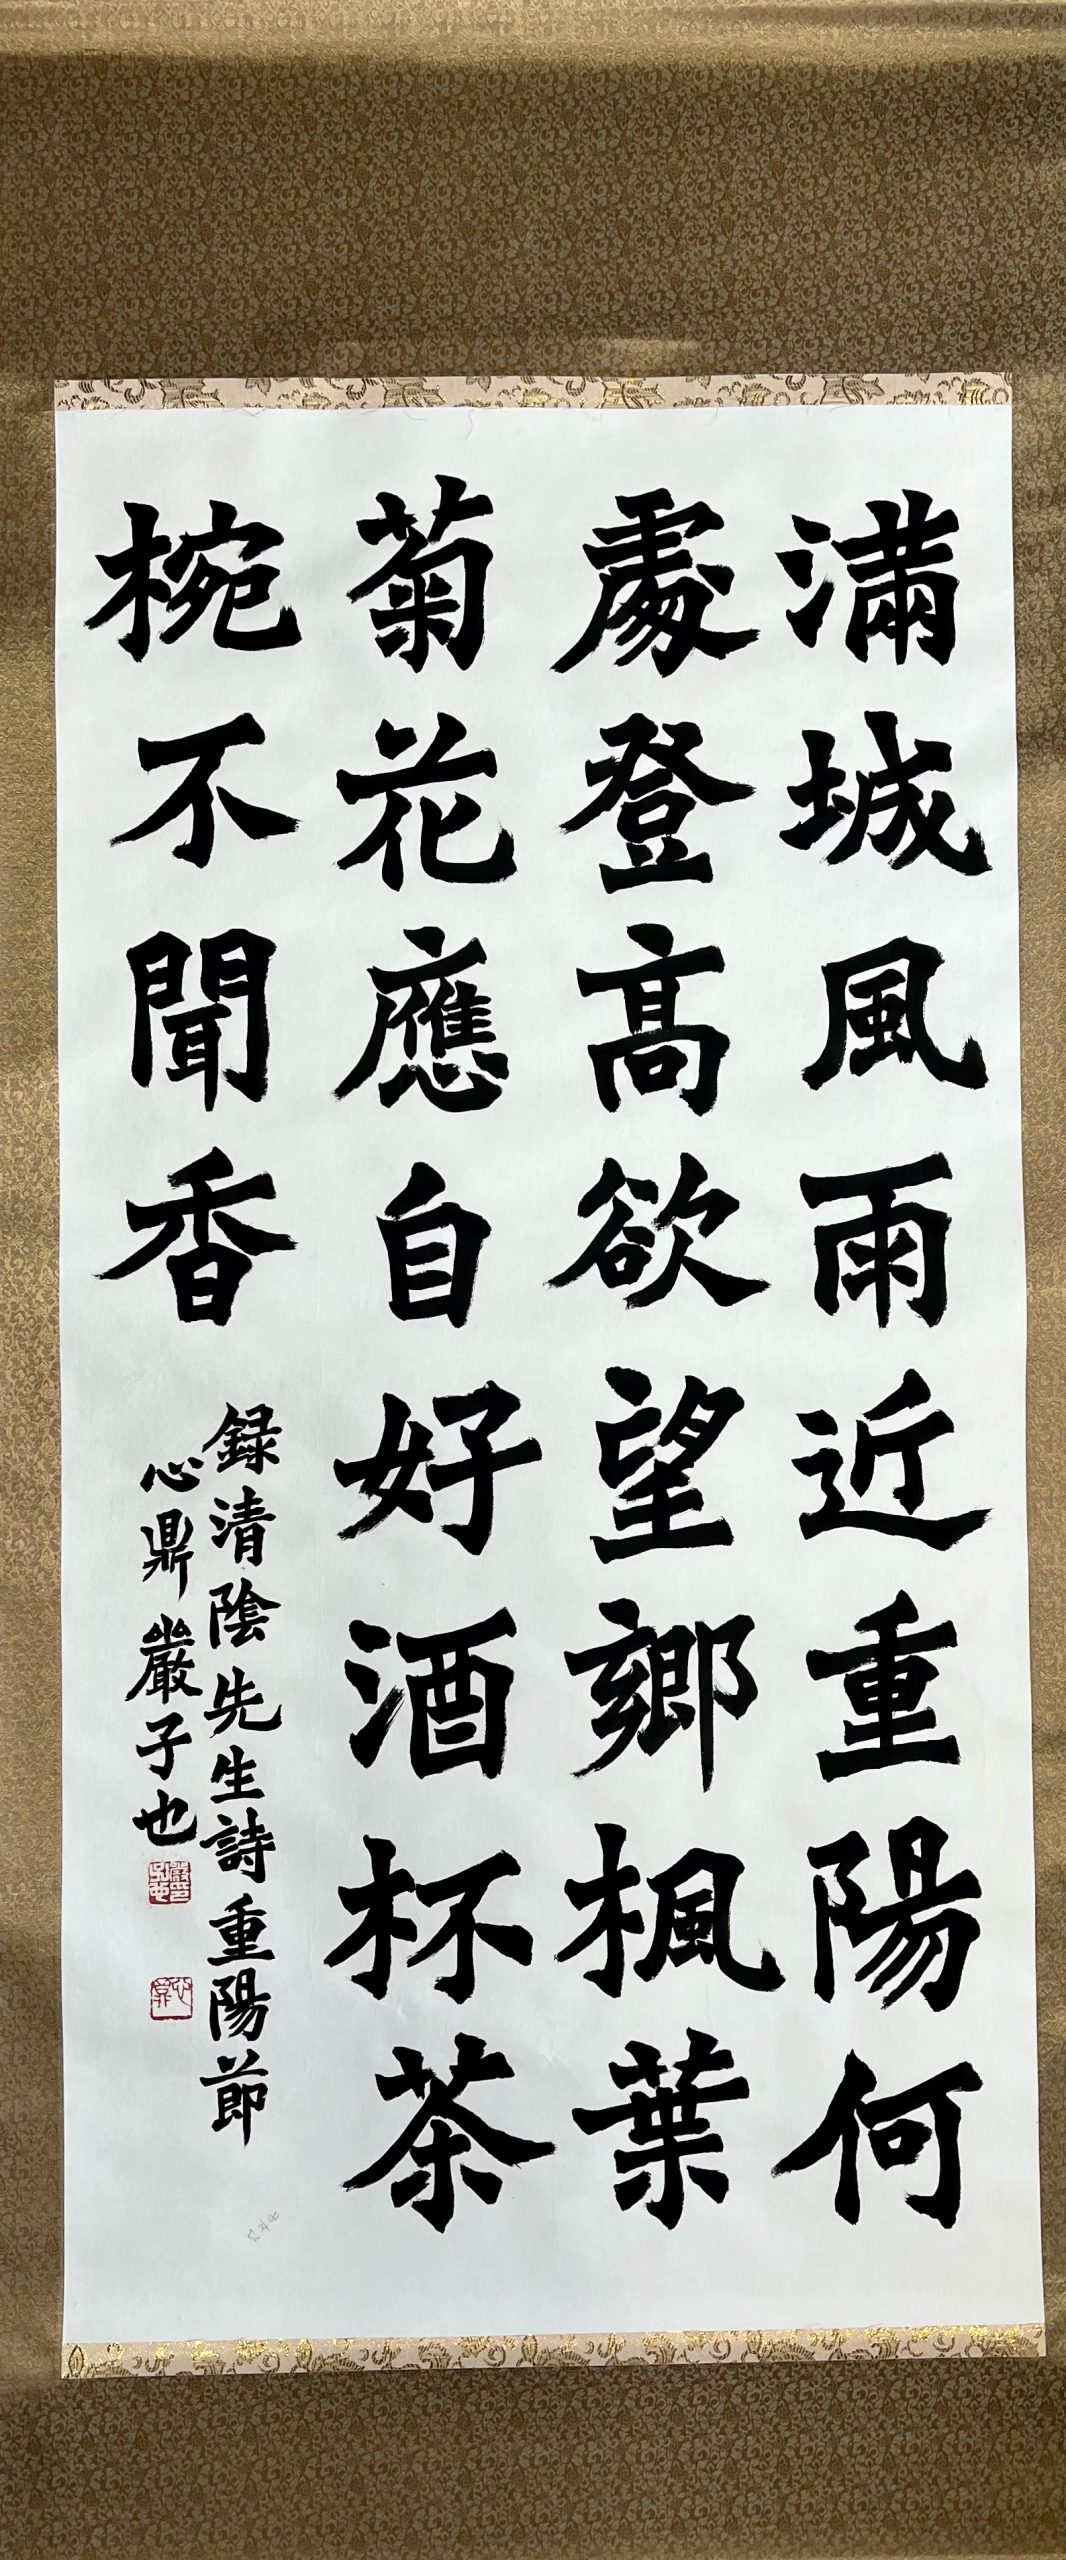 滿城風雨近重陽何
處登高欲望鄉楓葉
菊花應自好酒杯茶
椀不聞香
録清陰先生詩重陽節
心鼎嚴子也